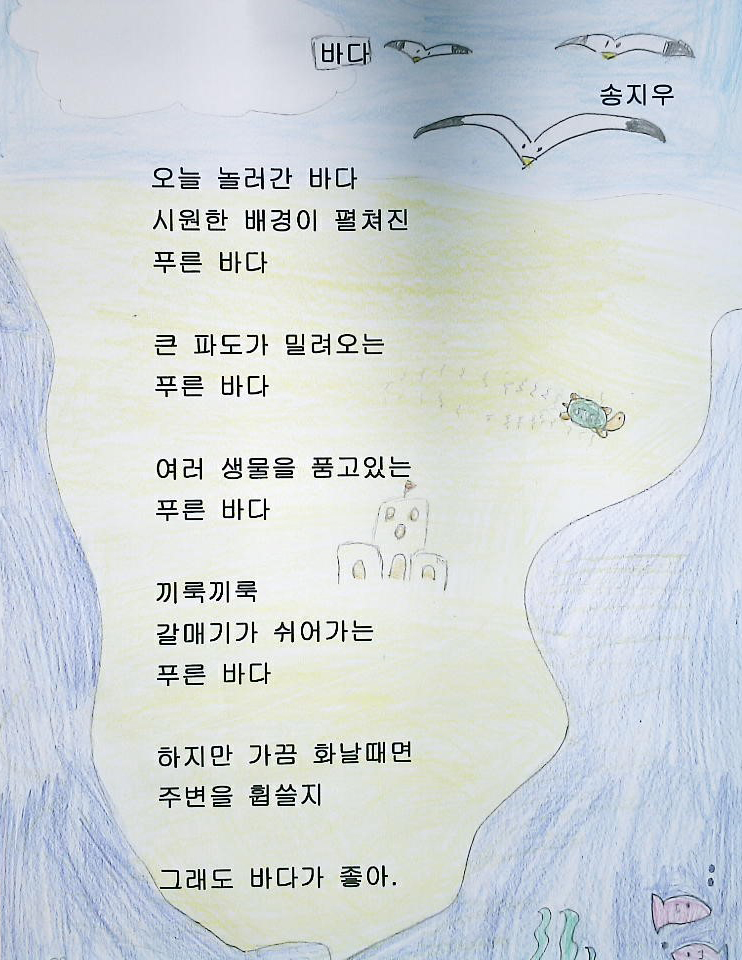 바다
송지우
오늘 놀러간 바다
시원한 배경이 펼쳐진
푸른 바다
큰 파도가 밀려오는
푸른 바다
여러 생물을 품고있는
푸른 바다
끼룩끼룩
갈매기가 쉬어가는
푸른 바다
하지만 가끔 화날때면
주변을 휩쓸지
그래도 바다가 좋아.